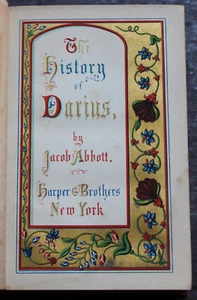 The
History
of
Darius,
by
Jacob Abbott.
Harper & Brothers
New York